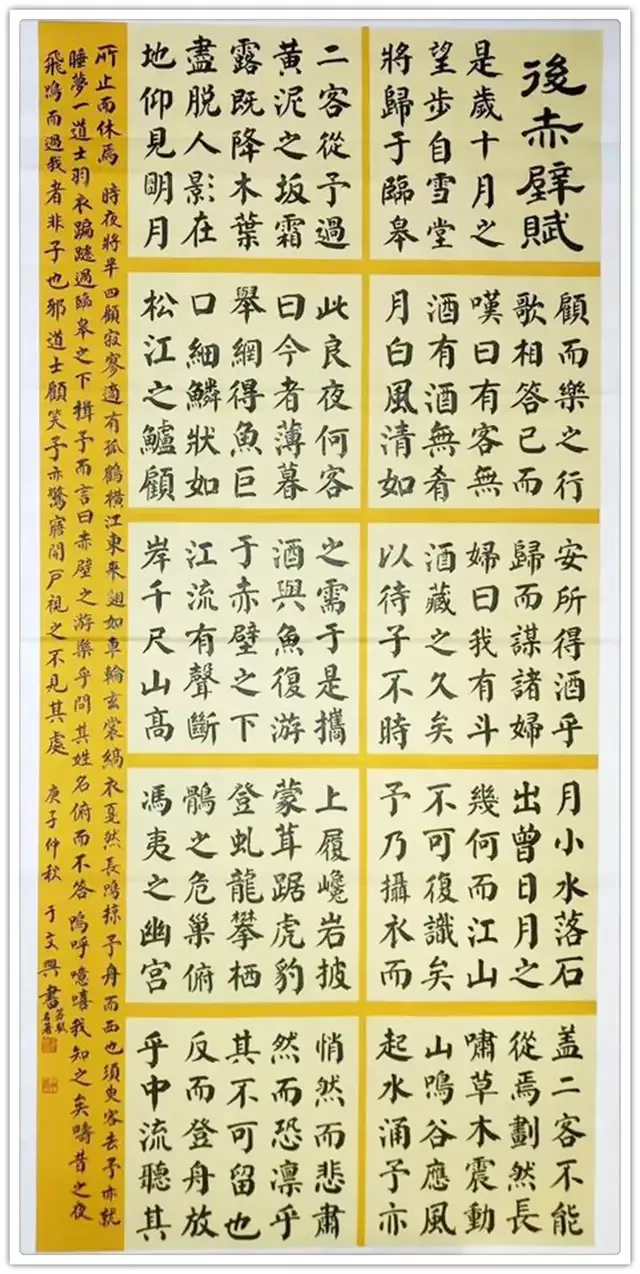 後赤壁賦
是歲十月之
望步自雪堂
將歸于臨皋
二客從予過
黃泥之坂霜
露既降木葉
盡脫人影在
地仰見明月
顧而樂之行
歌相答已而
嘆曰有客無
酒有酒無肴
月白風清如
此良夜何客
曰今者薄暮
舉網得魚巨
口細鱗狀如
松江之鱸顧
安所得酒乎
歸而謀諸婦
婦曰我有斗
酒藏之久矣
以待子不時
之需于是攜
酒與魚復游
于赤壁之下
江流有聲斷
岸千尺山高
月小水落石
出曾日月之
幾何而江山
不可復識矣
予乃攝衣而
上履巉岩披
蒙茸踞虎豹
登虬龍攀栖
鶻之危巢俯
馮夷之幽宮
蓋二客不能
從焉劃然長
嘯草木震動
山鳴谷應風
起水涌予亦
悄然而悲肅
然而恐凜乎
其不可留也
反而登舟放
乎中流聽其
所止而休焉 時夜將半四顧寂寥適有孤鶴橫江東來翅如車輪玄裳縞衣戛然長鳴掠予舟而西也須臾客去予亦就
睡夢一道士羽衣蹁躚過臨皋之下揖予而言曰赤壁之游樂乎問其姓名俯而不答嗚呼噫嘻我知之矣疇昔之夜
飛鳴而過我者非子也邪道士顧笑予亦驚寤開戶視之不見其處 庚子仲秋 于文興書